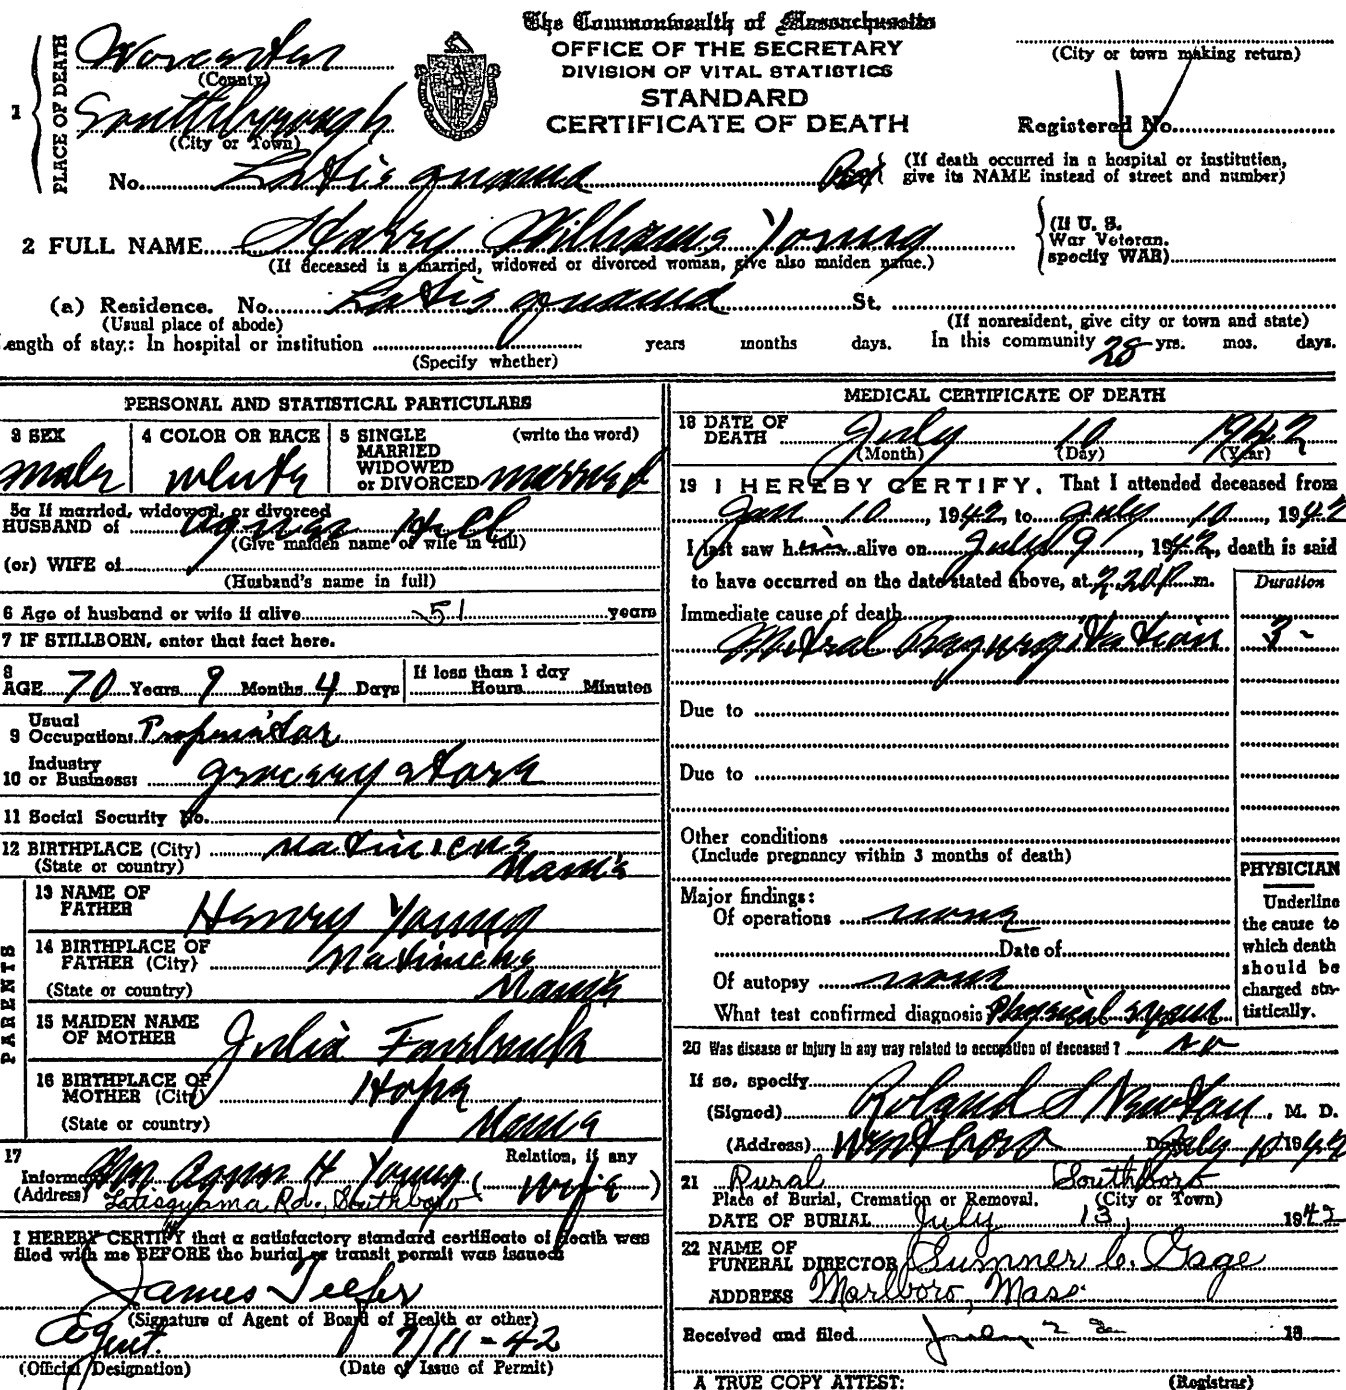 The Commonwealth of Massachusetts
OFFICE OF THE SECRETARY
DIVISION OF VITAL STATISTICS
STANDARD
CERTIFICATE OF DEATH
(City or town making return)
Registered No.
1 PLACE OF DEATH
Worcester
(County)
Southborough
(City or Town)
No. Latisquama Rd. (If death occurred in a hospital or institution, give its NAME instead of street and number)
2 FULL NAME Harry Williams Young
(If deceased is a married, widowed or divorced woman, give also maiden name.)
(If U. S. War Veteran, specify WAR)
(a) Residence. No. Latisquama St.
(Usual place of abode) (If nonresident, give city or town and state)
Length of stay: In hospital or institution years months days. In this community 28 yrs. mos. days.
(Specify whether)
PERSONAL AND STATISTICAL PARTICULARS
3 SEX
male
4 COLOR OR RACE
white
5 SINGLE MARRIED WIDOWED or DIVORCED (write the word)
married
5a If married, widowed, or divorced
HUSBAND of Agnes Hill
(Give maiden name of wife in full)
(or) WIFE of
(Husband's name in full)
6 Age of husband or wife if alive 51 years
7 IF STILLBORN, enter that fact here.
8 AGE 70 Years 9 Months 4 Days
If less than 1 day
Hours Minutes
9 Usual Occupation: Proprietor
10 Industry or Business: grocery store
11 Social Security No.
12 BIRTHPLACE (City) Matinicus
(State or country) Maine
PARENTS
13 NAME OF FATHER Henry Young
14 BIRTHPLACE OF FATHER (City) Matinicus
(State or country) Maine
15 MAIDEN NAME OF MOTHER Julia
16 BIRTHPLACE OF MOTHER (City) Hope
(State or country) Maine
17 Informant Agnes H Young Relation, if any (wife)
(Address) Latisquama Rd., Southboro
I HEREBY CERTIFY that a satisfactory standard certificate of death was
filed with me BEFORE the burial or transit permit was issued:
James
(Signature of Agent of Board of Health or other)
Agent. 7/11-42
(Official Designation) (Date of Issue of Permit)
MEDICAL CERTIFICATE OF DEATH
18 DATE OF DEATH July 10 1942
(Month) (Day) (Year)
19 I HEREBY CERTIFY, That I attended deceased from
Jan 10, 1942, to July 10, 1942
I last saw him alive on July 9, 1942, death is said
to have occurred on the date stated above, at 2.20P m.
Duration
Immediate cause of death
Mitral Regurgitation 3-
Due to
Due to
Other conditions
(Include pregnancy within 3 months of death)
Major findings:
Of operations none
Date of
Of autopsy none
What test confirmed diagnosis Physical exam
PHYSICIAN
Underline the cause to which death should be charged statistically.
20 Was disease or injury in any way related to occupation of deceased? no
If so, specify
(Signed) Roland S Newton, M. D.
(Address) Westboro Date July 10 1942
21 Rural Southboro
Place of Burial, Cremation or Removal. (City or Town)
DATE OF BURIAL July 13, 1942
22 NAME OF FUNERAL DIRECTOR Sumner C. Gage
ADDRESS Marlboro, Mass.
Received and filed 19
A TRUE COPY ATTEST: (Registrar)